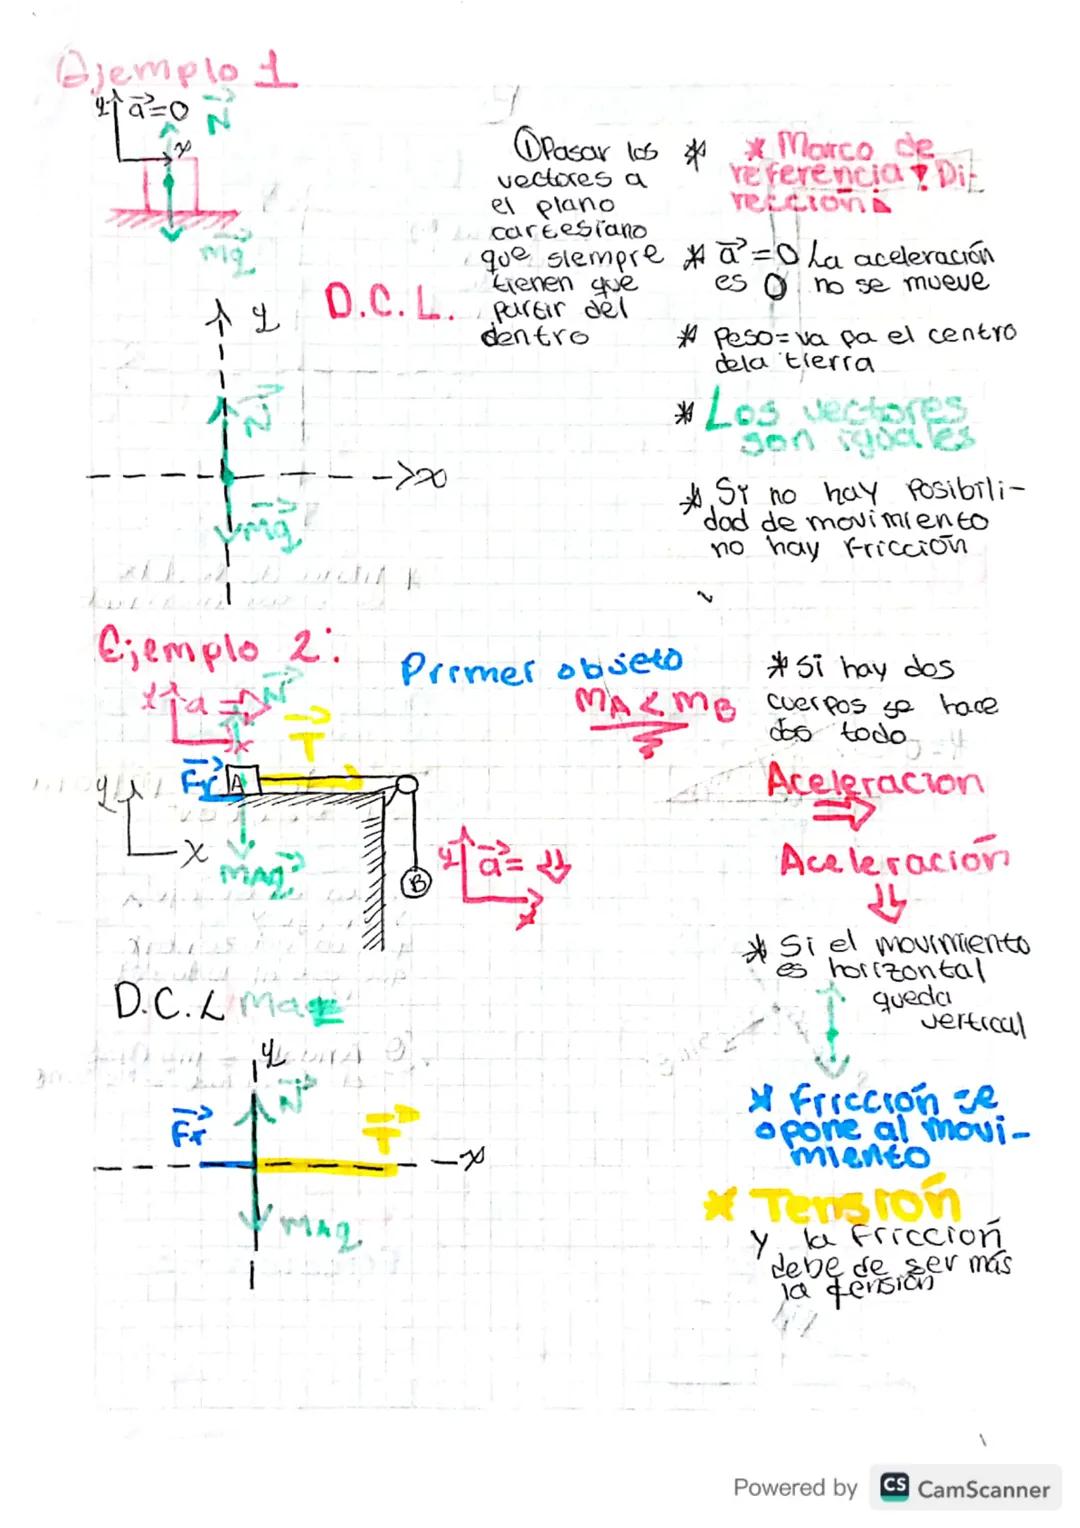 Ejemplo 1
y a=0 N
x
mg
① Pasar los
vectores a
el plano
cartesiano
que siempre
tienen que
partir del
dentro
D.C.L.
y
N
x
mg
*
* Marco de
referencia y Di-
rección
* a=0 La aceleración
es 0 no se mueve
* Peso=va pa el centro
dela tierra
* Los vectores
son iguales
* Si no hay Posibili-
dad de movimiento
no hay Fricción
Ejemplo 2:
Primer objeto
MA < MB
y a ⇒ N
x
T
Fr A
y
x
MAg
B
y a= ⇓
x
* Si hay dos
cuerpos se hace
dos todo
Aceleracion
⇒
Aceleración
⇓
* Si el movimiento
es horizontal
queda
vertical
D.C.L
y
N
Fr
T
x
MAg
* Fricción se
opone al movi-
miento
* Tensión
y la Fricción
debe de ser más
la tensión
Powered by CS CamScanner